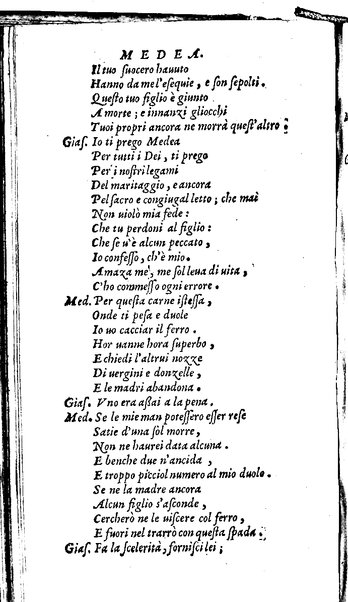 MEDEA.
Il tuo ſuocero hauuto
Hanno da me l'eſequie, e ſon ſepolti.
Queſto tuo figlio è giunto
A morte; e innanzi gliocchi
Tuoi propri ancora ne morrà queſt'altro:
Giaſ. Io ti prego Medea
Per tutti i Dei, ti prego
Per i noſtri legami
Del maritaggio, e ancora
Pel ſacro e congiugal letto; che mai
Non uiolò mia fede:
Che tu perdoni al figlio:
Che ſe u'è alcun peccato,
Io confeſſo, ch'è mio.
Amaza me, me ſol leua di uita,
C'ho commeſſo ogni errore.
Med. Per queſta carne iſteſſa,
Onde ti peſa e duole
Io uo cacciar il ferro.
Hor uanne hora ſuperbo,
E chiedi l'altrui nozze
Di uergini e donzelle,
E le madri abandona.
Giaſ. Vno era aſſai a la pena.
Med. Se le mie man poteſſero eſſer reſe
Satie d'una ſol morre,
Non ne haurei data alcuna.
E benche due n'ancida,
E troppo picciol numero al mio duolo.
Se ne la madre ancora
Alcun figlio s'aſconde,
Cercherò ne le uiſcere col ferro,
E fuori nel trarrò con queſta ſpada.
Giaſ. Fa la ſcelerità, forniſci lei;